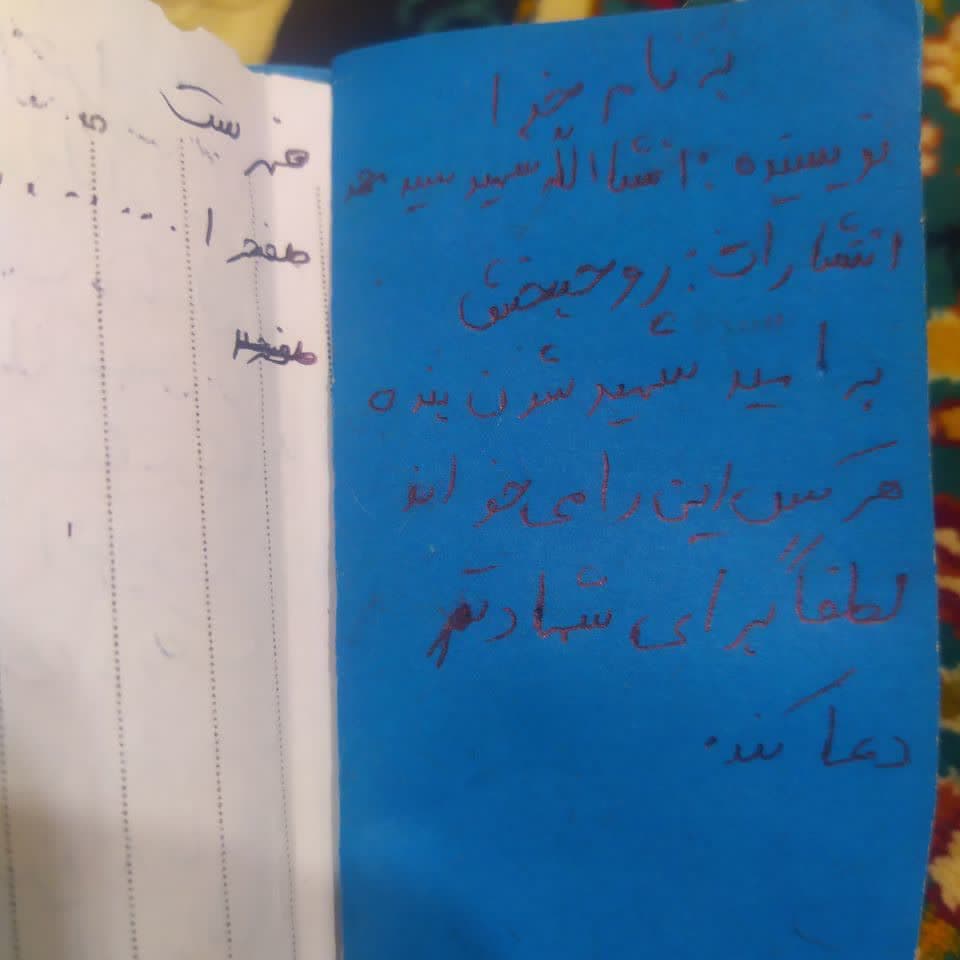 به نام خدا
نویسنده: انشاالله شهید سید
انتشارات: روحبخش
به امید شهید شدن بنده
هر کس این را می خواند
لطفاً برای شهادتم
دعا کند.
فهرست
صفحه ۱